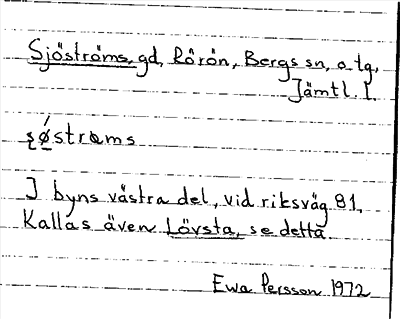 Sjöströms, gd, Rörön, Bergs sn, o. tg,
Jämtl. l.
ʂǿstrøms
I byns västra del, vid riksväg 81,
Kallas även Lövsta, se detta.
Ewa Persson 1972